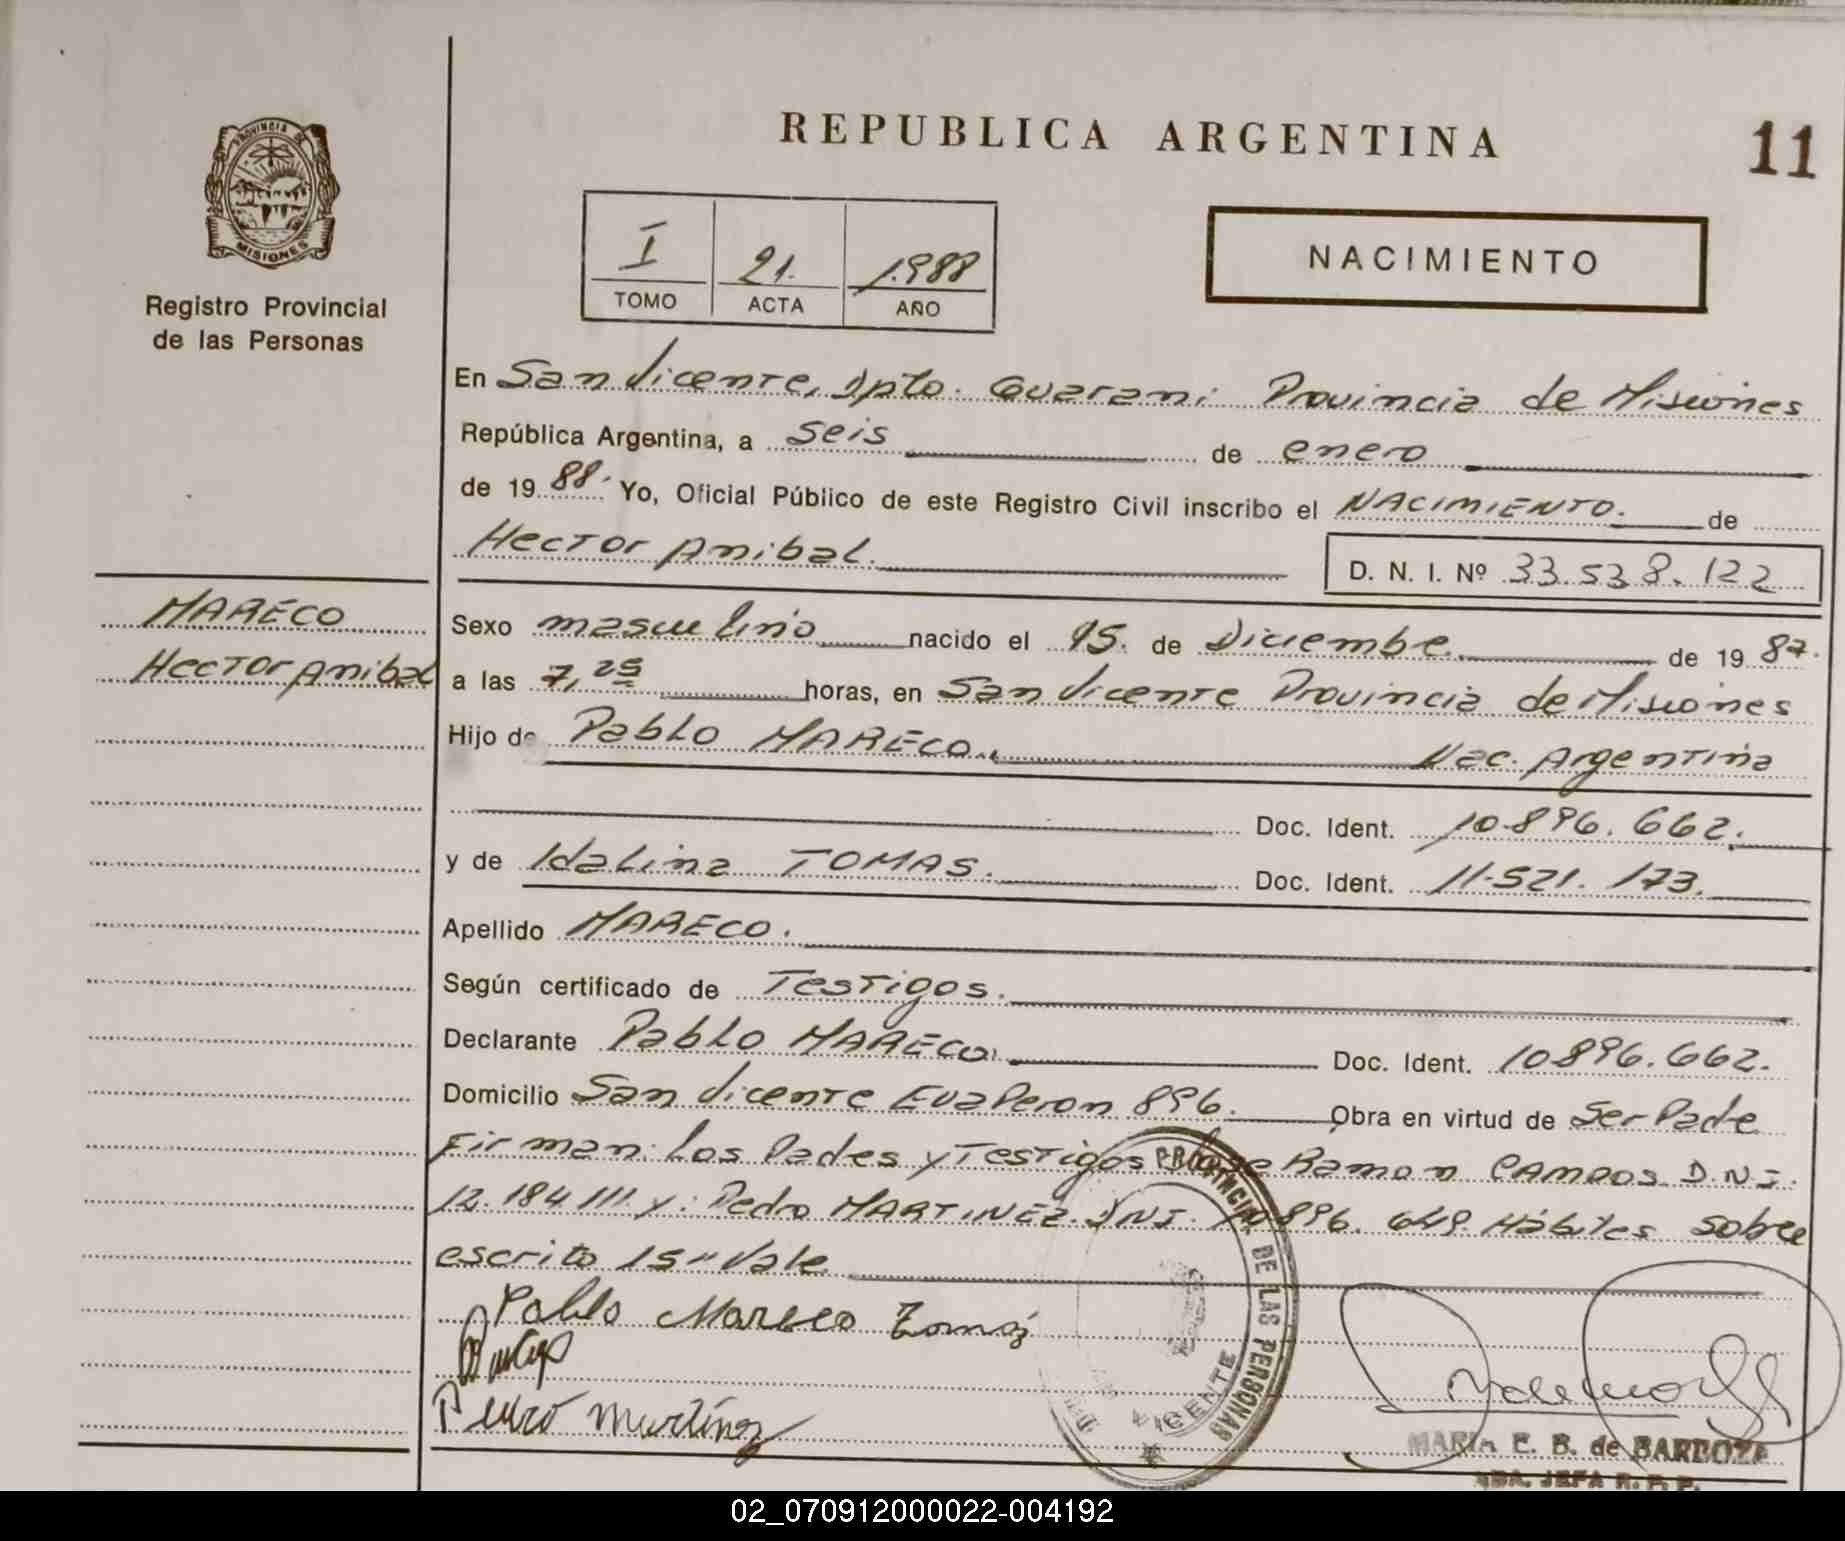 REPUBLICA ARGENTINA
11
PROVINCIA DE
MISIONES
Registro Provincial
de las Personas
I 21. 1.988
TOMO ACTA AÑO
NACIMIENTO
En San Vicente, Dpto. Guarani Provincia de Misiones
República Argentina, a seis de enero
de 1988. Yo, Oficial Público de este Registro Civil inscribo el NACIMIENTO. de
Hector Anibal.
D. N. I. Nº 33.538.122
MARECO
Hector Anibal
Sexo masculino nacido el 15. de Diciembre de 1987.
a las 7,25 horas, en San Vicente Provincia de Misiones
Hijo de Pablo MARECO. Nac. Argentina
Doc. Ident. 10.896.662.
y de Idalina TOMAS. Doc. Ident. 11.521.173.
Apellido MARECO.
Según certificado de Testigos.
Declarante Pablo MARECO. Doc. Ident. 10896.662.
Domicilio San Vicente Eva Peron 896. Obra en virtud de Ser Padre
Firman: Los Padres y Testigos Ramon CAMPOS D.N.I.
12.184.111. y: Pedro MARTINEZ. DNI. 10896.649. Hábiles Sobre
escrito 15" Vale
Pablo Mareco Tomas
Pedro Martínez
PROVINCIAL DE LAS PERSONAS
VICENTE
MARIA E. B. de BARBOZA
JEFA R. P. P.
02_070912000022-004192